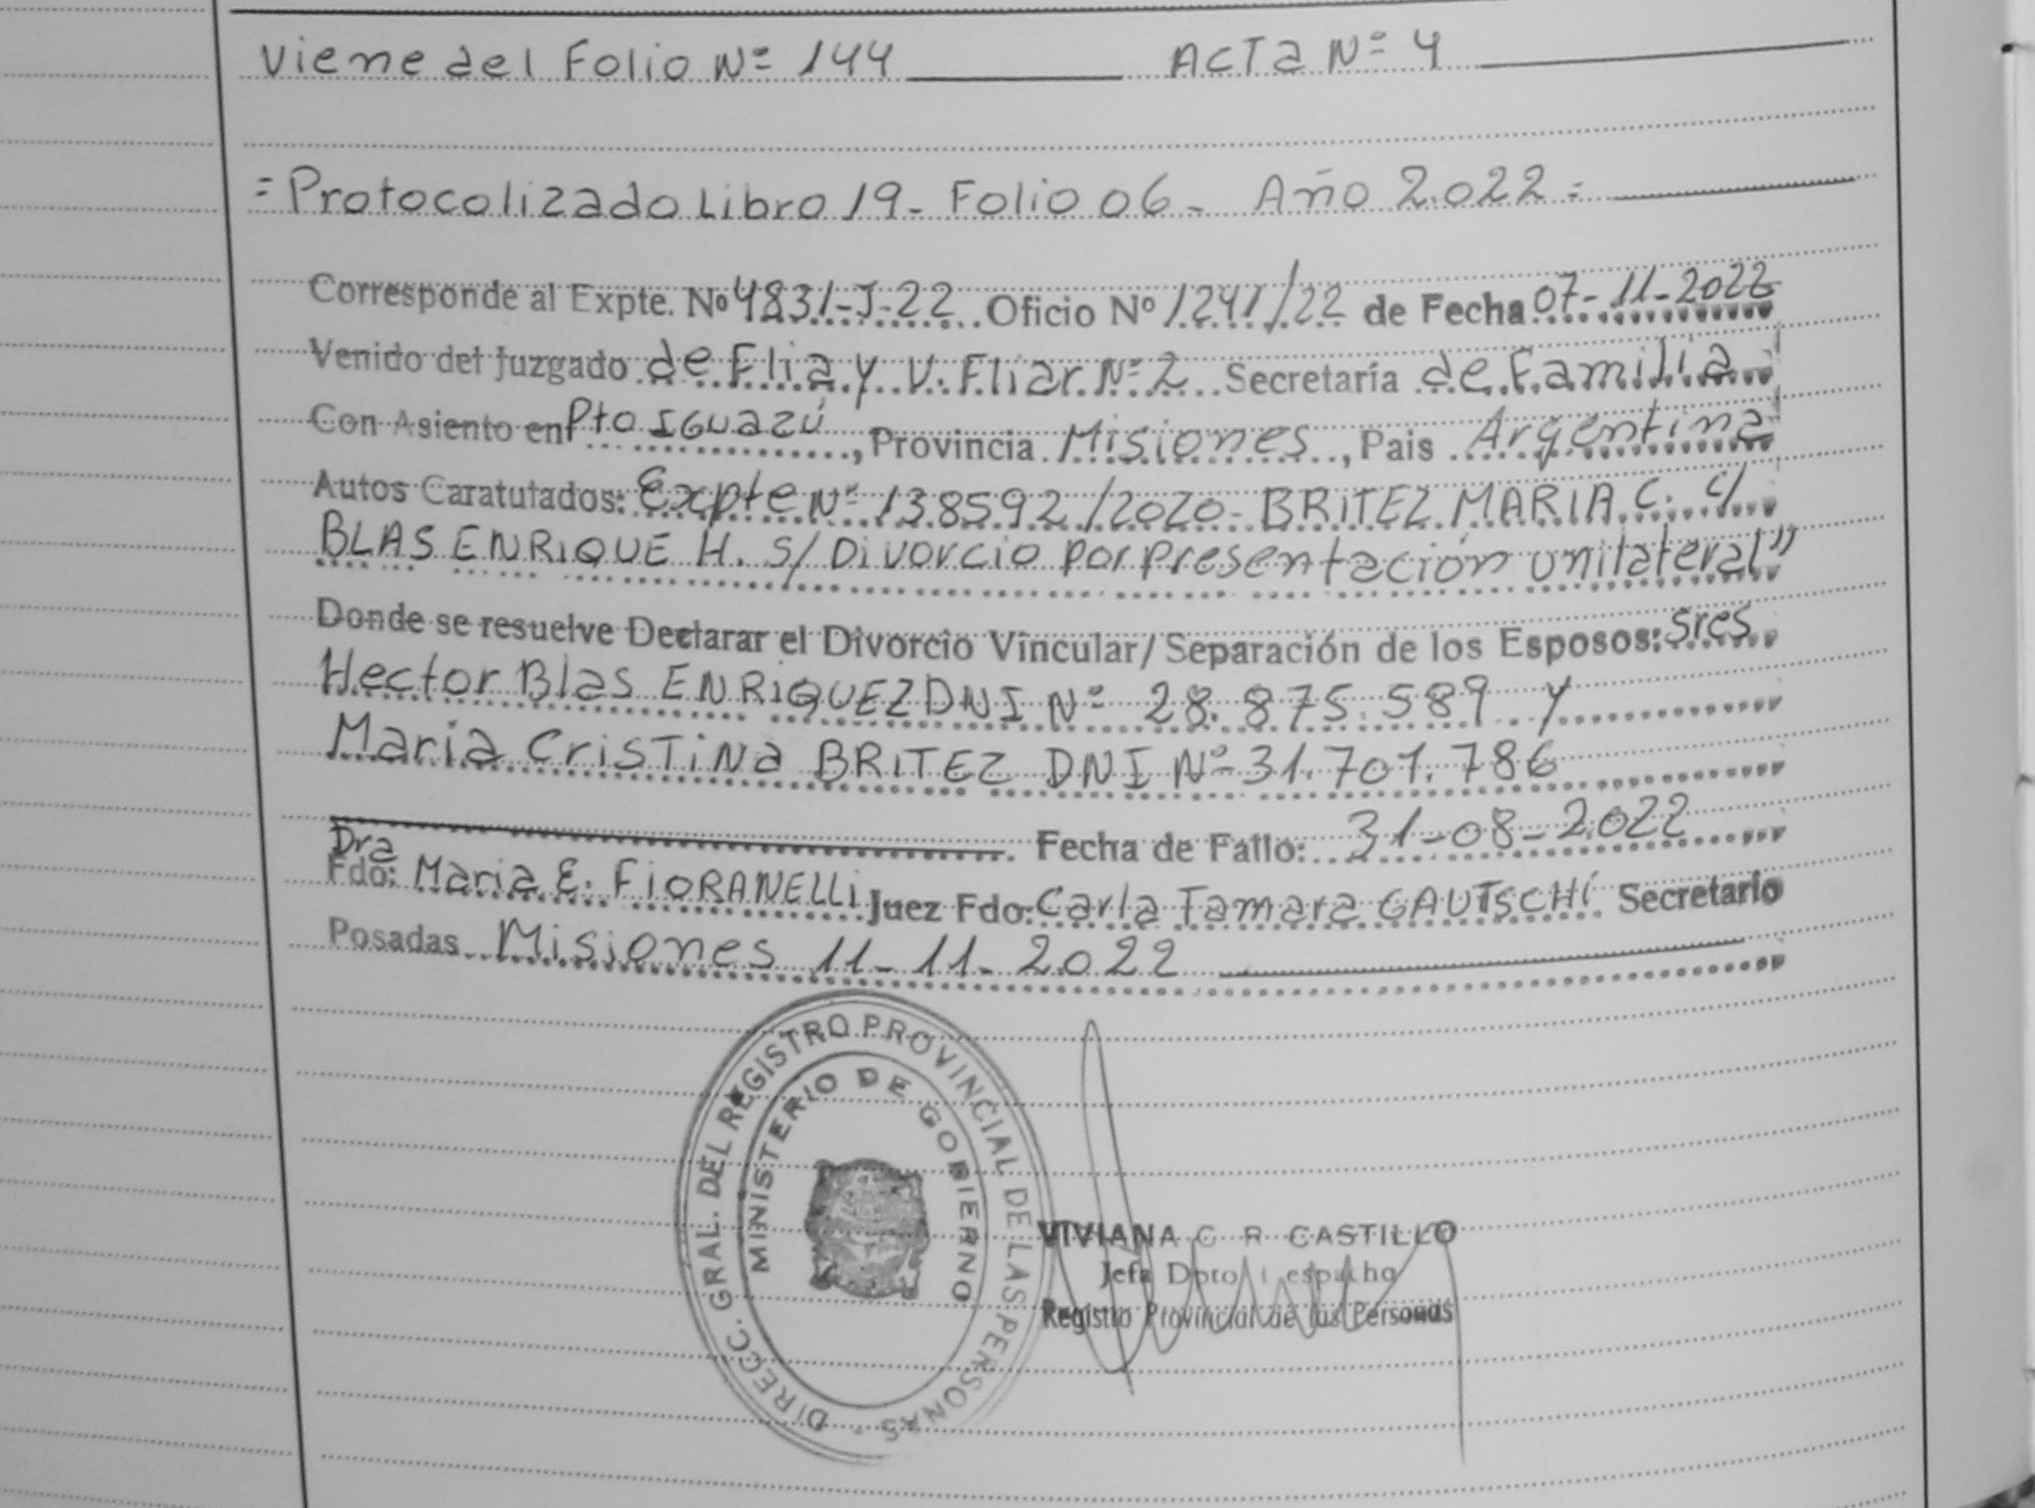 Viene del Folio Nº 144 ACTa Nº 4
= Protocolizado Libro 19 - Folio 06 - Año 2.022 =
Corresponde al Expte. Nº 4831-J-22 Oficio Nº 1241/22 de Fecha 07-11-2022
Venido del Juzgado de Flia y V. Fliar Nº 2 Secretaría de Familia
Con Asiento en Pto IGuazú, Provincia Misiones, Pais Argentina
Autos Caratulados: Expte Nº 138592/2020- BRITEZ MARIA C. c/
BLAS ENRIQUE H. S/ Divorcio por presentación unilateral"
Donde se resuelve Declarar el Divorcio Vincular/ Separación de los Esposos: Sres
Hector Blas ENRIQUEZ DNI Nº 28.875.589 y
Maria CrisTiNa BRITEZ DNI Nº 31.701.786
Fecha de Fallo: 31-08-2022
Dra
Fdo: Maria E. FIORANELLI Juez Fdo: Carla Tamara GAUTSCHI Secretario
Posadas Misiones 11-11-2022
DIRECC. GRAL. DEL REGISTRO PROVINCIAL DE LAS PERSONAS
MINISTERIO DE GOBIERNO
VIVIANA C R CASTILLO
Jefa Dpto Despacho
Registro Provincial de las Personas